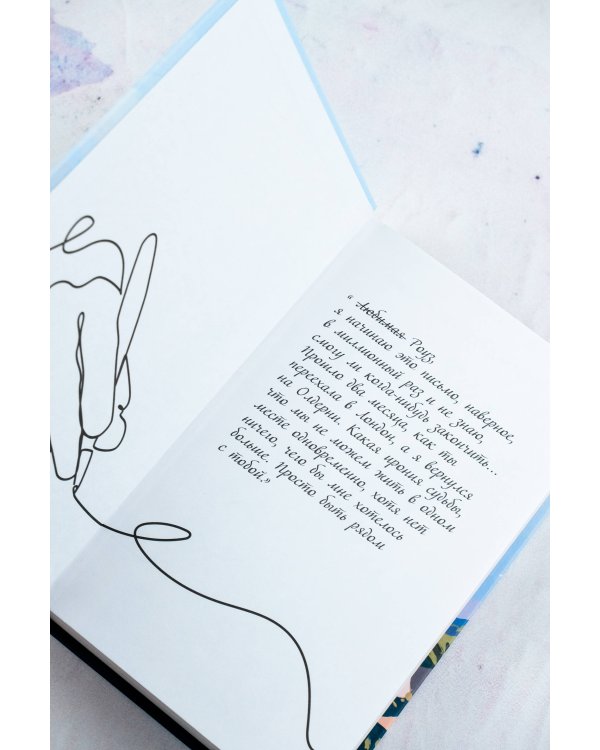 “ Любимая Роуз,
я начинаю это письмо, наверное,
в миллионный раз и не знаю,
смогу ли когда-нибудь закончить...
Прошло два месяца, как ты
переехала в Лондон, а я вернулся
на Олдерни. Какая ирония судьбы,
что мы не можем жить в одном
месте одновременно, хотя нет
ничего, чего бы мне хотелось
больше. Просто быть рядом
с тобой.”